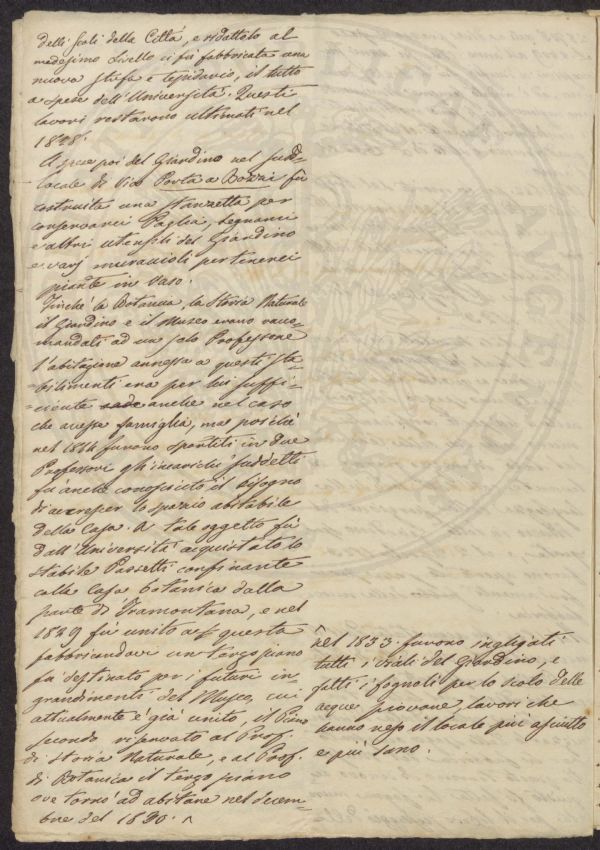 delli scoli della Città, e ridottolo al
medesimo Livello ci fu fabbricata una
nuova stufa e tepidario, il tutto
a spese dell'Università. Questi
lavori restarono ultimati nel
1828.
A spese poi del Giardino nel sud°
locale di Via Porta a Bozzi fù
costruita una stanzetta per
conservarci Paglia, Legnami
e altri utensili del Giardino
e varj muraccioli per tenerci
piante in Vaso.
Finchè la Botanica, la Storia Naturale
il Giardino e il Museo erano racco=
mandati ad un solo Professore
l'abitazione annessa a questi sta=
bilimenti era per lui suffi=
ciente anche nel caso
che avesse famiglia, ma poichè
nel 1814 furono spartiti in due
Professori gl'incarichi suddetti
fu anche conosciuto il bisogno
di accrescer lo spazio abitabile
della Casa. A tale oggetto fù
dall'Università acquistato lo
stabile Passetti confinante
colla Casa botanica dalla
parte di Tramontana, e nel
1829 fù unito a questa
fabbricandovi un terzo piano
fu destinato per i futuri in=
grandimenti del Museo, cui
attualmente è già unito, il Piano
secondo riservato al Prof.
di Storia Naturale, e al Prof.
di Botanica il terzo piano
ove tornò ad abitare nel decem=
bre del 1830. ^
^ nel 1833. furono inghiajati
tutti i Viali del Giardino, e
fatti i fognoli per lo scolo delle
acque piovane, lavori che
hanno reso il locale più asciutto
e più sano.